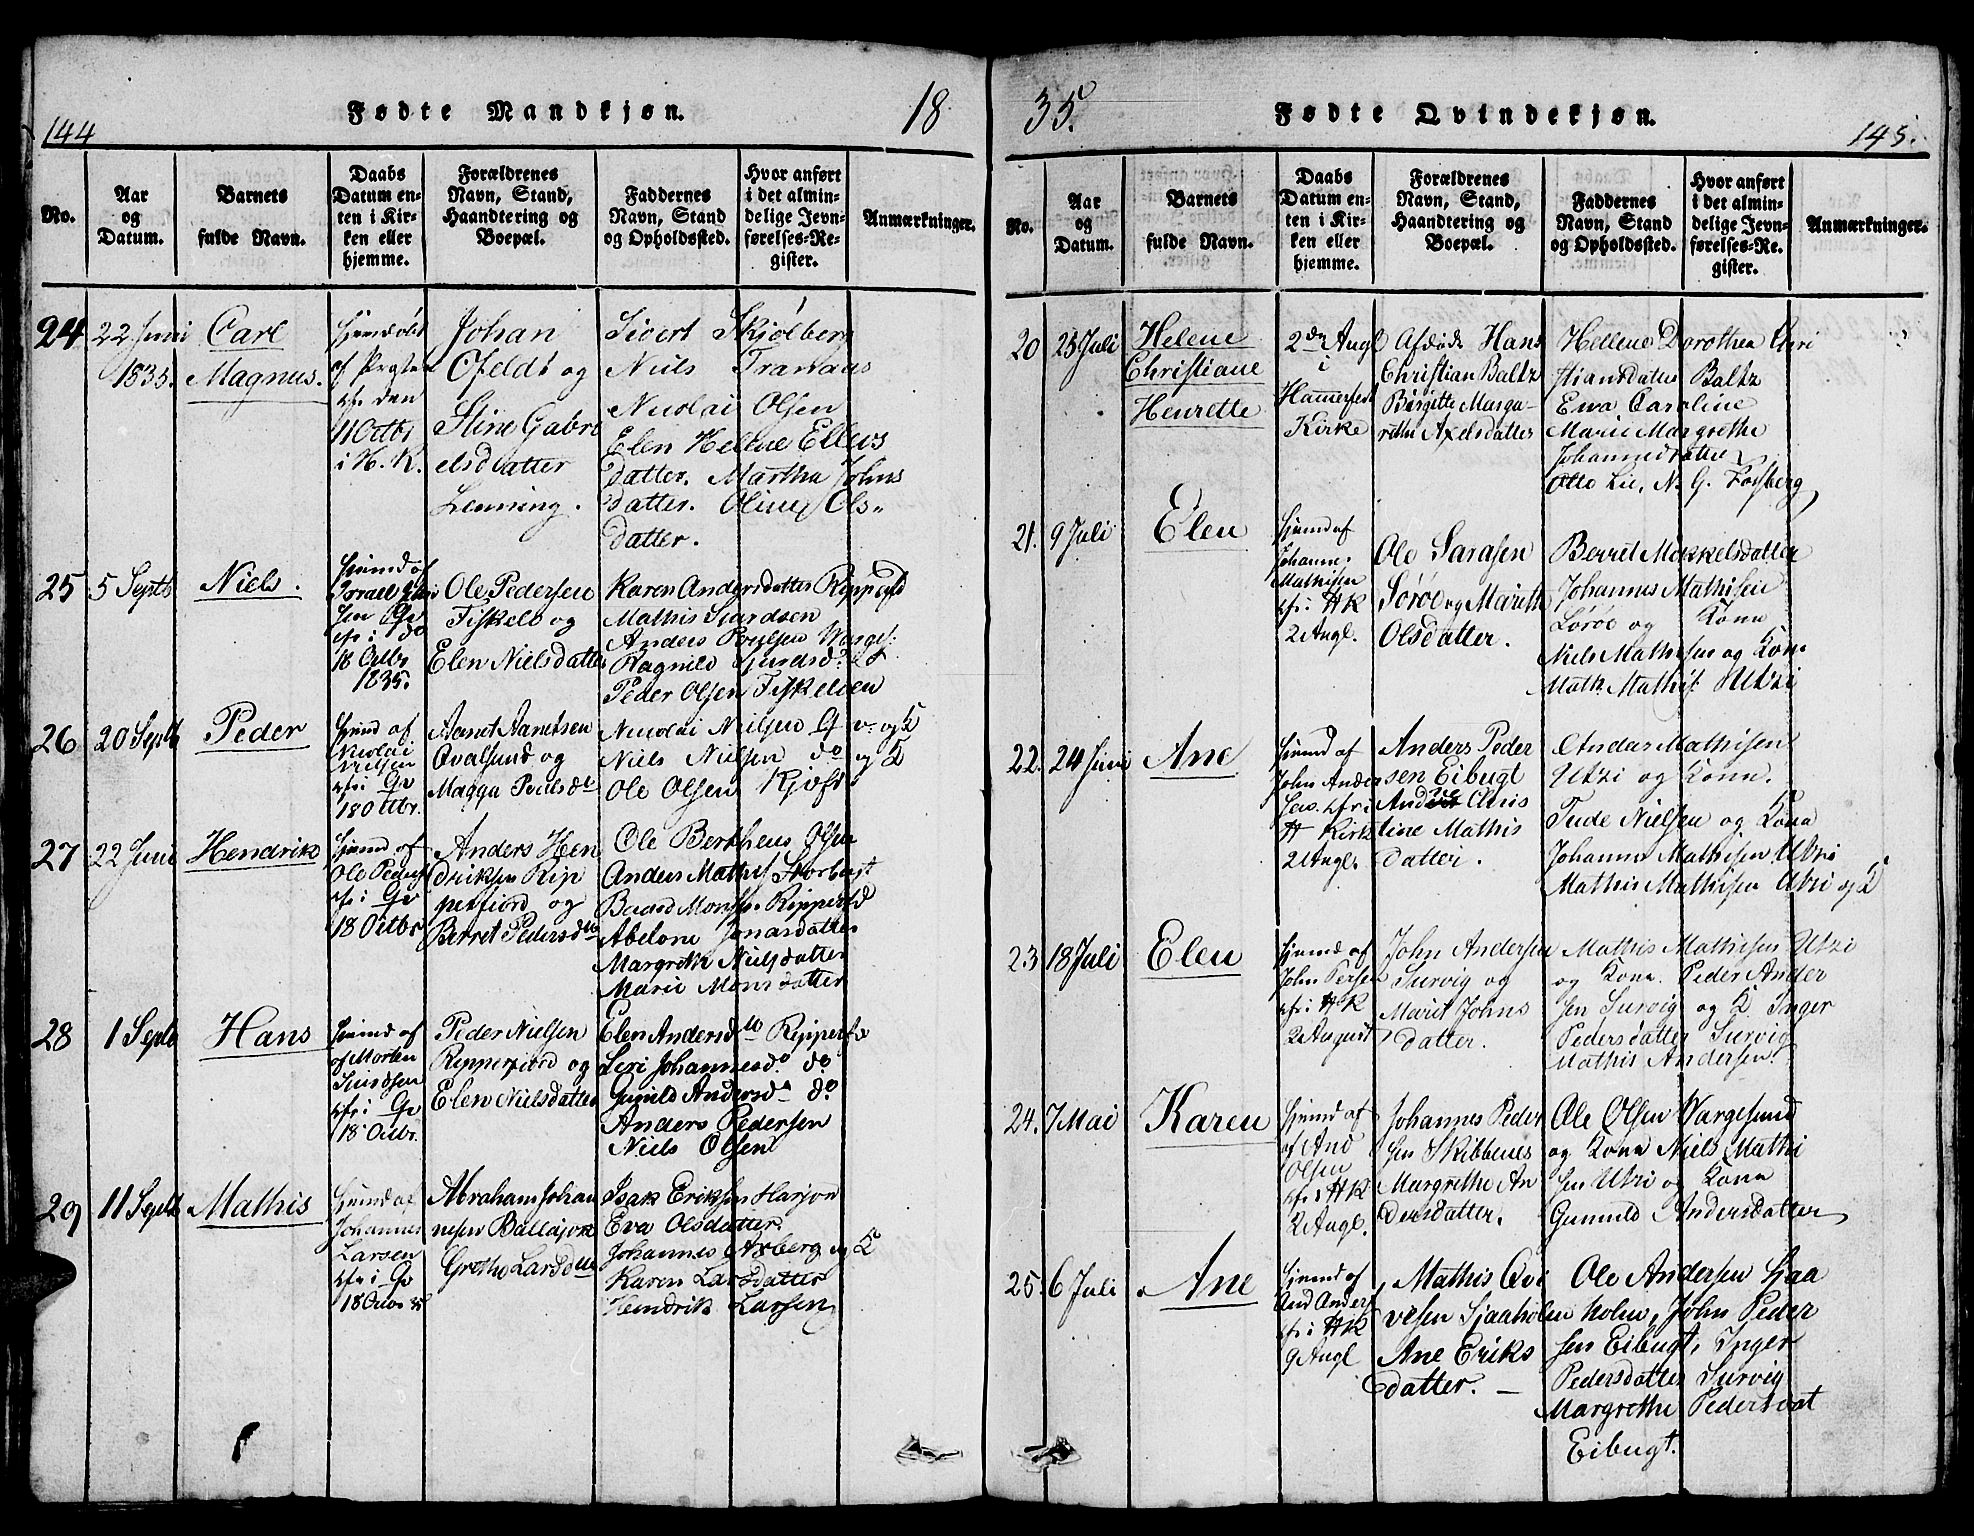 144
Fødte Mandkjøn.
18
No.
Aar og Datum.
Barnets fulde Navn.
Daabs Datum enten i Kirken eller hjemme.
Forældrenes Navn, Stand, Haandtering og Boepæl.
Faddernes Navn, Stand og Opholdssted.
Hvor anført i det almindelige Jevnførelses-Register.
Anmærkninger.
24
22 Juni
1835.
Carl
Magnus.
Hjemdøbt
af Præsten
den
11 Octbr
i H. K.
Johan
Ofeldt og
Stine Gabri
elsdatter
Lenning.
Sivert Skjølberg
Niels Tranaas
Nicolai Olsen
Elen Helene Ellevs
datter. Martha Johns
datter. Oline Ols
datter.
25
5 Septb
Niels.
Hjemd af
Israel
sen Gv
i do
18 Octbr
1835.
Ole Pedersen
Fiskelv og
Elen Nielsdatter
Karen Andersdatter Ripperfd
Mathis Siurdsen
Anders Poulsen Wargs.
Ragnild Siurdsd.
Peder Olsen Fiskelven
26
20 Septb
Peder
Hjemd af
Nicolai
Nielsen
cfr i Gv
18 Octbr.
Aanet Aanetsen
Qvalsund og
Magga Poulsdtr
Nicolai Nielsen Gv. og K
Niels Nielsen do og K
Ole Olsen
27
22 Juni
Hendrik
Hjemd af
Ole Peders
cfr i Gv
18 Octbr
Anders Hen
driksen Rip
perfiord og
Berret Pedersdtr
Ole Bertheus Olsen
Anders Mathis Storbugt
Baard Mons. Ripperfd
Abelone Jonasdatter
Margreth Nielsdatter
Marie Monsdatter
28
1 Septb
Hans
Hjemd af
af Morten
Siurdsen
cfr i Gv
18 Octbr.
Peder Nielsen
Ripperfiord og
Elen Nielsdatter
Elen Andersdtr Ripperfd
Siri Johannesd. do
Gunild Andersd do
Anders Pedersen
Niels Olsen
29
11 Septb
Mathis
Hjemd af
Johannes
Larsen
cfr i Gv
18 Octbr 35
Abraham Johan
nesen Ballajok
Grethe Larsdtr
Isak Eriksen Hasjok
Eva Olsdatter.
Johannes Asberg og K
Karen Larsdatter
Hendrik Larsen
35.
Fødte Qvindekjøn.
145.
No.
Aar og Datum.
Barnets fulde Navn.
Daabs Datum enten i Kirken eller hjemme.
Forældrenes Navn, Stand, Haandtering og Boepæl.
Faddernes Navn, Stand og Opholdssted.
Hvor anført i det almindelige Jevnførelses-Register.
Anmærkninger.
20
25 Juli
Helene
Christiane
Henrette
2de Augl
i
Hamerfest
Kirke
Afdøde Hans
Christian Baltz
Birgitte Marga-
rethe Axelsdatter
Hellene Dorothea Chri
stiansdatter Baltz
Ewa Caroline
Marie Margrethe
Johannesdatter
Otto Lie, N. G. Forsberg
21.
9 Juli
Elen
Hjemd af
Johanne.
Mathisen
cfr i HK
2 Augl.
Ole Sarasen
Sørøe og Mareth
Olsdatter.
Berret Mikkelsdatter
Johannes Mathisen
Sørøe og Kona
Niels Mathisen og Kona
Math. Mathis. Utzi
22.
24 Juni
Ane
Hjemd af
John Ander
sen. cfr i
H Kirk
2 Augl.
Anders Peder
sen Eibugt
And Chris
tine Mathis
datter.
Andas Mathisen
Utzi og Kona.
Tude Nielsen og Kona
Johannes Mathisen Utzi
Mathis Mathisen Utzi og K
23
18 Juli
Elen
Hjemd af
John Persen
cfr i HK
2 August
John Andersen
Survig og
Marit Johns
datter.
Mathis Mathisen Utzi
og Kona. Peder Ander
sen Survig og K Inger
Pedersdatter Survig
Mathis Andersen.
24.
7 Mai
Karen
Hjemd af
af And
Olsen
cfr i HK
2 Augl.
Johannes Peder
sen Skibbenes
Margrethe An
dersdatter.
Ole Olsen Wargesund
og Kona Niels Mathi
sen Utzi og Kona
Gunnild Andersdatter
25.
6 Juli
Ane
Hjemd af
And Anders
cfr i HK
9 Augl
Mathis Qvi
vesen Sjaaholm
Ane Eriks
datter.
Ole Andersen Sjaa
holm, John Peder
sen Eibugt, Inger
Pedersdatter Survig
Margrethe Pedersdat
Eibugt.